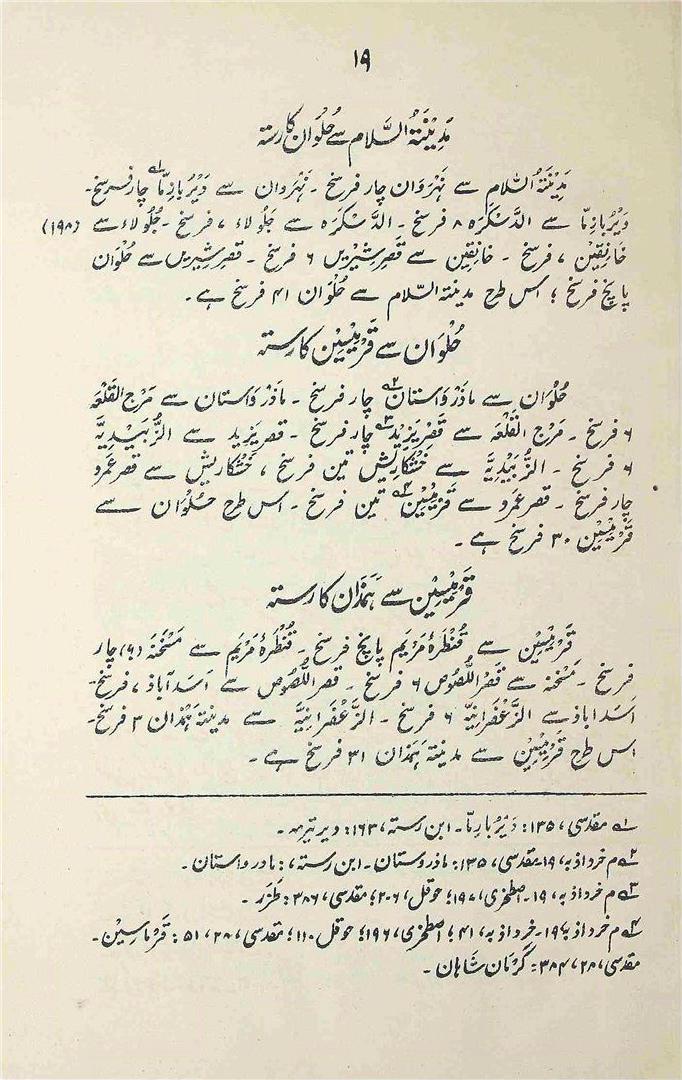 ۱۹
مَدِیْنَۃُ السَّلام سے حُلْوان کا رستہ
مَدِیْنَۃُ السَّلام سے نَہْرَوَان چار فرسخ ۔ نَہْرَوان سے دَیْرُبازِمَّا لہ چار فرسخ۔
دَیْرُبازِمَّا سے الدَّسْکَرَہ ۸ فرسخ ۔ الدَّسْکَرَہ سے جَلُولاء ۷ فرسخ ۔ جَلُولاء سے (۱۹۸)
خانِقِیْن ۷ فرسخ ۔ خانِقِین سے قصرِ شِیْرِیں ۶ فرسخ ۔ قصرِ شِیرِیں سے حُلْوان
پانچ فرسخ ؛ اس طرح مدینۃ السّلام سے حُلْوان ۴۱ فرسخ ہے ۔
حُلْوَان سے قَرْمِیْسِیْن کا رستہ
حُلْوَان سے مَاذَرْوَاستان ۲ہ چار فرسخ ۔ ماذَرْوَاستان سے مَرْج القَلْعَہ
۶ فرسخ ۔ مَرْج القَلْعَہ سے قَصْرِ یَزِیْد ۳ہ چار فرسخ ۔ قصرِ یزید سے الزُّبَیْدِیَّہ
۶ فرسخ ۔ الزُّبَیْدِیَّہ سے خُشْکارِیْش تین فرسخ ، خُشْکارِیش سے قصرِ عَمرو
چار فرسخ ۔ قصرِ عَمرو سے قَرْمِیْسِیْن ۴ہ تین فرسخ ۔ اس طرح حُلْوان سے
قَرْمِیْسِیْن ۳۰ فرسخ ہے ۔
قَرْمِیْسِیْن سے ہَمَذان کا رستہ
قَرْمِیْسِیْن سے قَنْطَرۂ مَرْیَم پانچ فرسخ ۔ قَنْطَرۂ مَرْیَم سے مَسْخَنَہ (؟) چار
فرسخ ۔ مَسْخَنہ سے قَصْرُ اللُّصُوص ۶ فرسخ ۔ قصر اللُّصُوص سے اَسَدآباذ ۷ فرسخ۔
اسَداباذ سے الزَّعْفَرانِیَّہ ۶ فرسخ ۔ الزَّعْفَرانِیَّہ سے مدینۃ ہَمَذان ۳ فرسخ۔
اس طرح قَرْمِیْسِیْن سے مدینۃ ہمَذان ۳۱ فرسخ ہے ۔
لہ مقدسی، ۱۳۵: دَیْرُ بارِمَّا ۔ ابن رستہ، ۱۶۳: دیر تیرمہ ۔
۲ہ م خرداذبہ، ۱۹۔ مقدسی، ۱۳۵: ماذروستان ۔ ابن رستہ، : مادرواستان ۔
۳ہ م خرداذبہ، ۱۹ ۔ اصطخری، ۱۹۷؛ حوقل، ۲۰۶؛ مقدسی، ۳۸۶: طَزَر ۔
۴ہ م خرداذبہ ۱۹۔ خرداذبہ، ۴۱؛ اصطخری، ۱۹۶؛ حوقل ۱۱۰؛ مقدسی، ۲۸، ۵۱: قَرْماسِین ۔
مقدسی، ۲۸، ۳۸۴: کَرْمَان شَاہان ۔